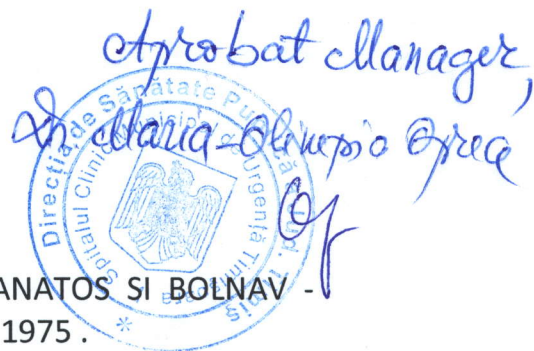 Aprobat Manager,
Dr Maria-Olimpia Oprea
Direcția de Sănătate Publică Jud. Timiș
Spitalul Clinic Municipal de Urgență Timișoara
ANATOS SI BOLNAV -
1975 .